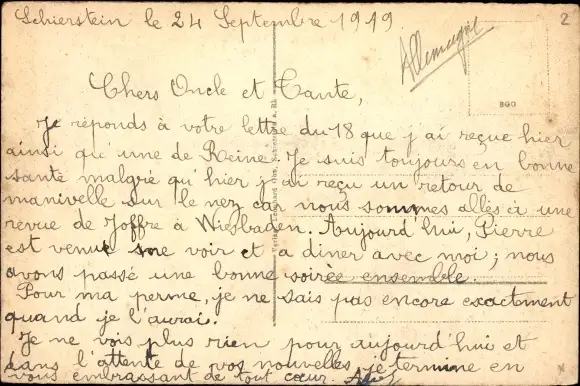 Schierstein le 24 Septembre 1919
2
Allemagne
BGO
Chers Oncle et Tante,
Je réponds à votre lettre du 18 que j'ai reçue hier
ainsi qu'une de Reine. Je suis toujours en bonne
santé malgré qu'hier j'ai reçu un retour de
manivelle sur le nez car nous sommes allés à une
revue de Joffre à Wiesbaden. Aujourd'hui, Pierre
est venu me voir et a diner avec moi ; nous
avons passé une bonne soirée ensemble.
Pour ma perme, je ne sais pas encore exactement
quand je l'aurai.
Je ne vois plus rien pour aujourd'hui et
dans l'attente de vos nouvelles je termine en
vous embrassant de tout cœur.